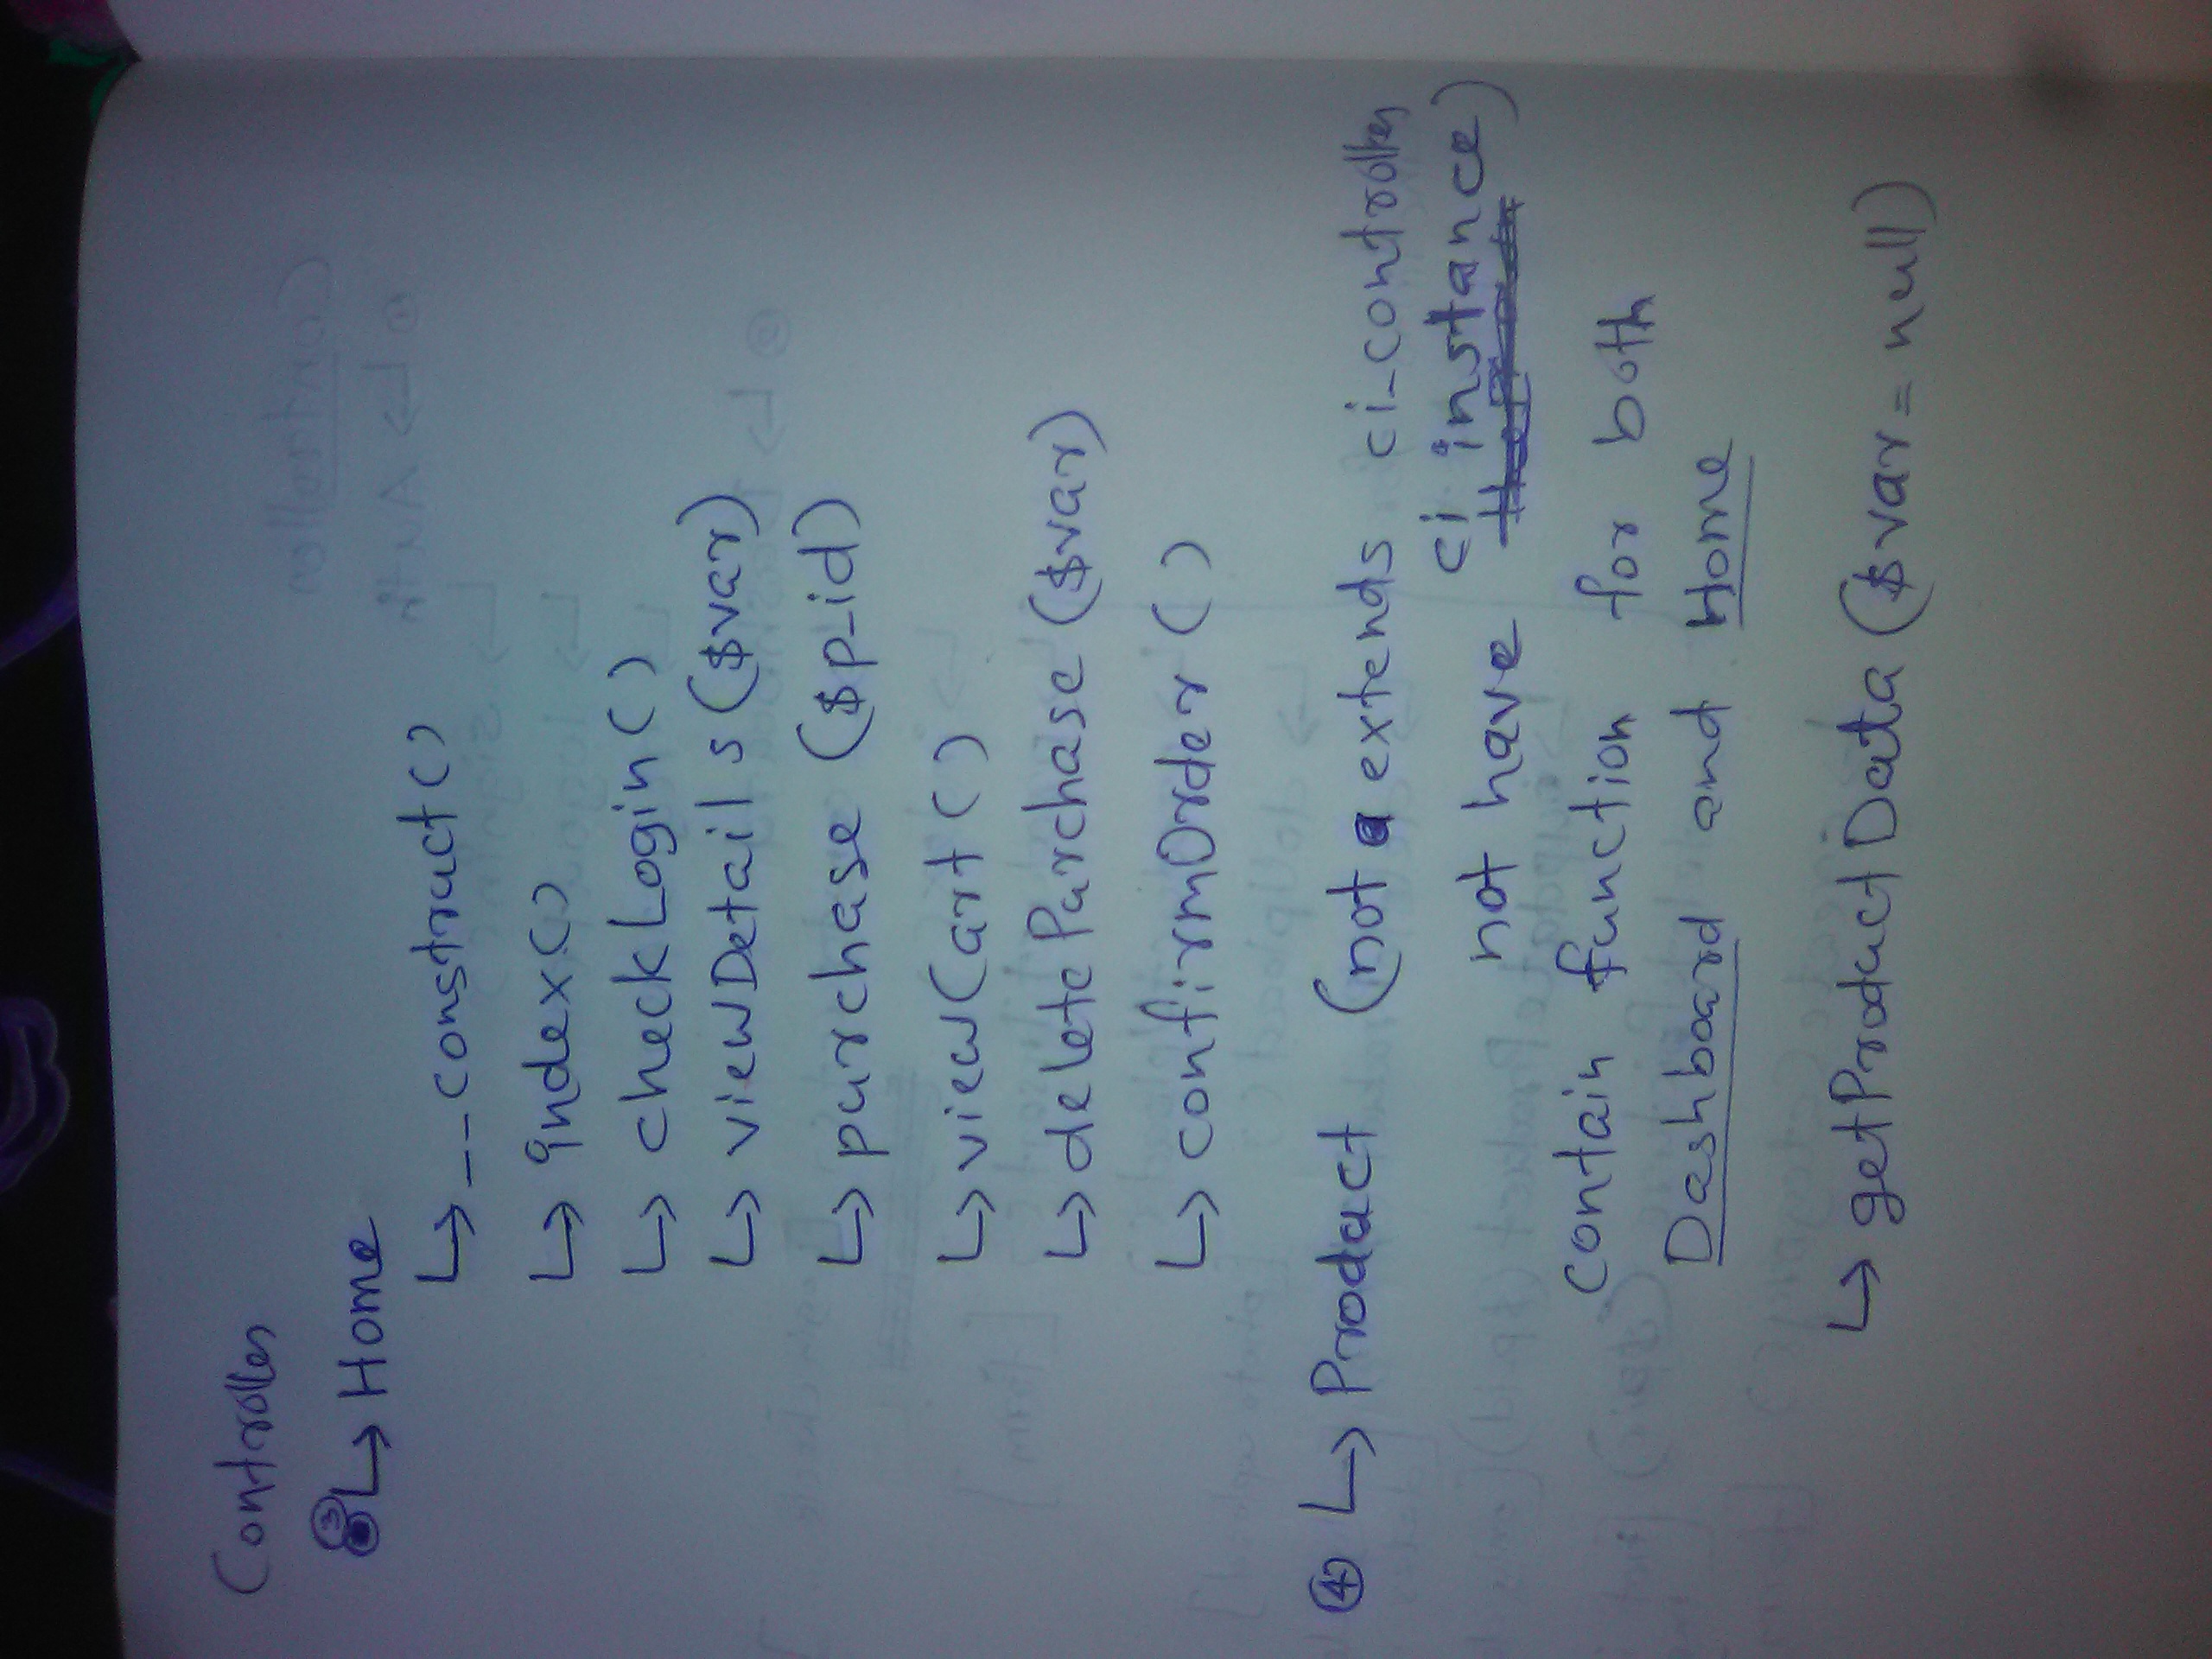 Controller
③ ↳ Home
↳ __construct()
↳ index()
↳ checkLogin()
↳ viewDetails($var)
↳ purchase ($p_id)
↳ viewCart()
↳ deletePurchase ($var)
↳ confirmOrder()
④ ↳ Product (not a extends ci_controller
not have ci instance)
contain function for both
Dashboard and Home
↳ getProductData ($var = null)